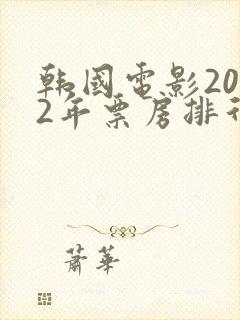 韩國電影20
2年票房排行
蕭華